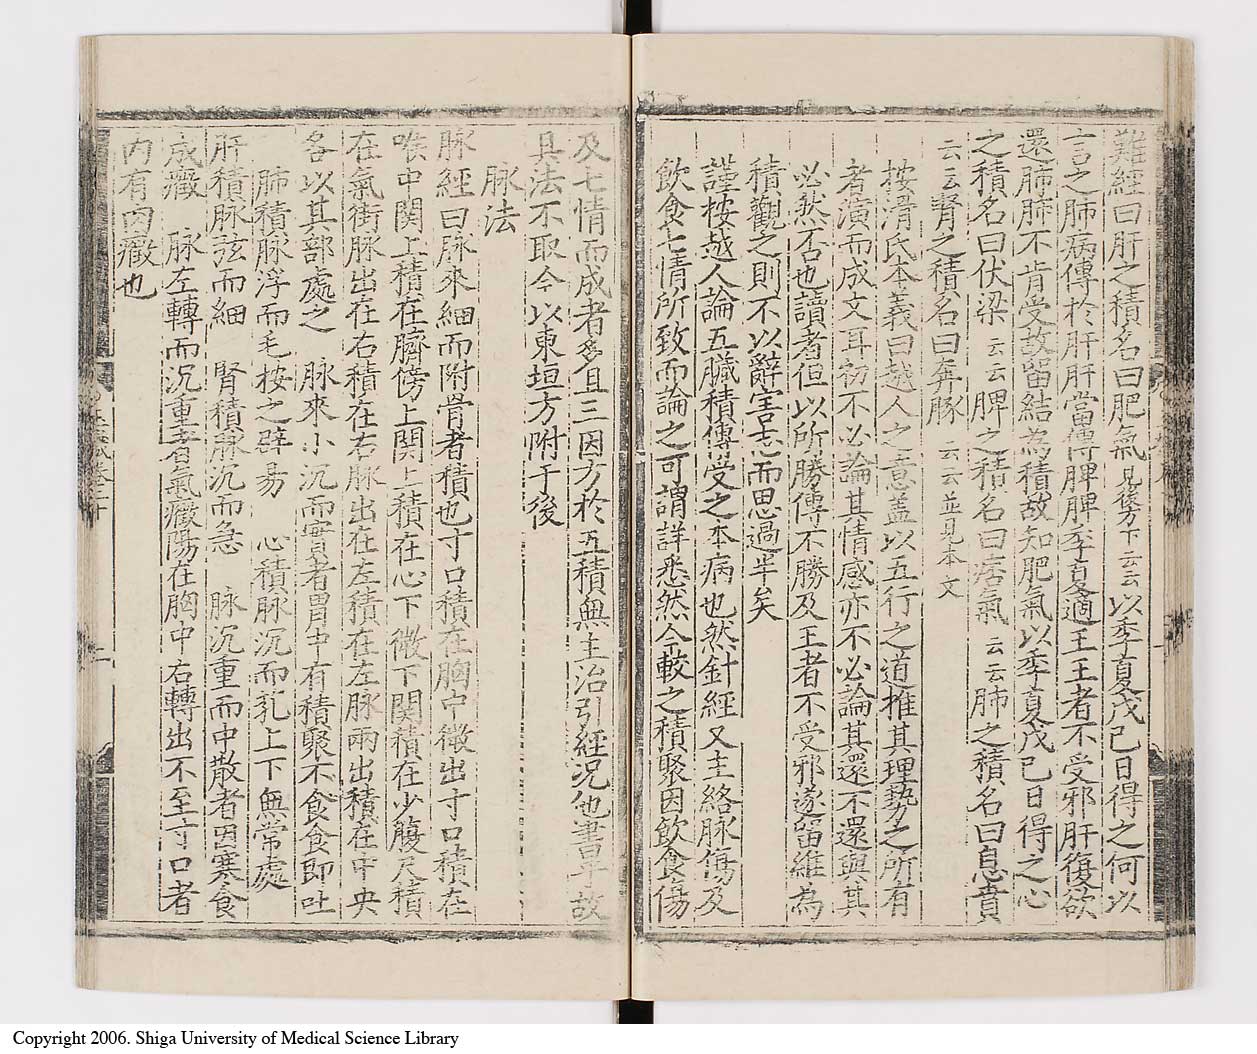 難經曰肝之積名曰肥氣見後方下云云以季夏戊己日得之何以
言之肺病傳於肝肝當傳脾脾季夏適王王者不受邪肝復欲
還肺肺不肯受故留結為積故知肥氣以季夏戊己日得之心
之積名曰伏梁云云脾之積名曰痞氣云云肺之積名曰息賁
云云腎之積名曰奔豚云云並見本文
按滑氏本義曰越人之意盖以五行之道推其理勢之所有
者演而成文耳初不必論其情感亦不必論其還不還與其
必然否也讀者但以所勝傳不勝及王者不受邪遂留維為
積觀之則不以辭害志而思過半矣
謹按越人論五臟積傳受之本病也然針經又主絡脉傷及
飲食七情所致而論之可謂詳悉然今較之積聚因飲食傷
及七情而成者多且三因方於五積無主治引經況他書乎故
具法不取今以東垣方附于後
脉法
脉經曰脉來細而附骨者積也寸口積在胸中微出寸口積在
喉中関上積在臍傍上関上積在心下微下関積在少腹尺積
在氣街脉出在右積在右脉出在左積在左脉兩出積在中央
各以其部處之 脉來小沉而實者胃中有積聚不食食即吐
肺積脉浮而毛按之辟易 心積脉沉而芤上下無常處
肝積脉弦而細 腎積脉沉而急 脉沉重而中散者因寒食
成癥 脉左轉而沉重者氣癥陽在胸中右轉出不至寸口者
内有肉癥也
Copyright 2006. Shiga University of Medical Science Library